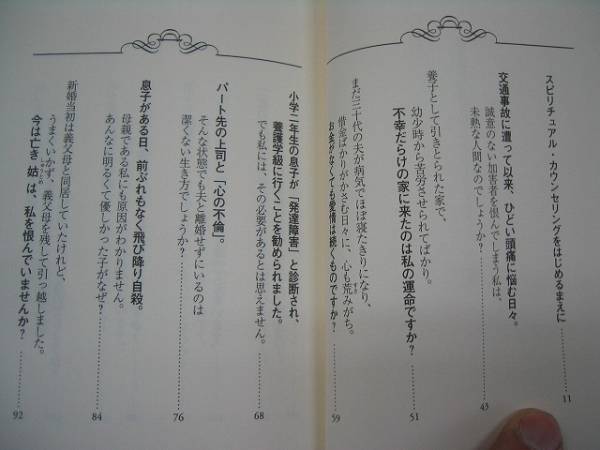 スピリチュアル・カウンセリングをはじめるまえに………11
交通事故に遭って以来、ひどい頭痛に悩む日々。
誠意のない加害者を恨んでしまう私は、
未熟な人間なのでしょうか？………43
養子として引きとられた家で、
幼少時から苦労させられてばかり。
不幸だらけの家に来たのは私の運命ですか？………51
まだ三十代の夫が病気でほぼ寝たきりになり、
借金ばかりがかさむ日々に、心も荒みがち。
お金がなくても愛情は続くものですか？………59
小学二年生の息子が「発達障害」と診断され、
養護学級に行くことを勧められました。
でも私には、その必要があるとは思えません。………68
パート先の上司と「心の不倫」。
そんな状態でも夫と離婚せずにいるのは
潔くない生き方でしょうか？………76
息子がある日、前ぶれもなく飛び降り自殺。
母親である私にも原因がわかりません。
あんなに明るくて優しかった子がなぜ？………84
新婚当初は義父母と同居していたけれど、
うまくいかず、義父母を残して引っ越しました。
今は亡き姑は、私を恨んでいませんか？………92